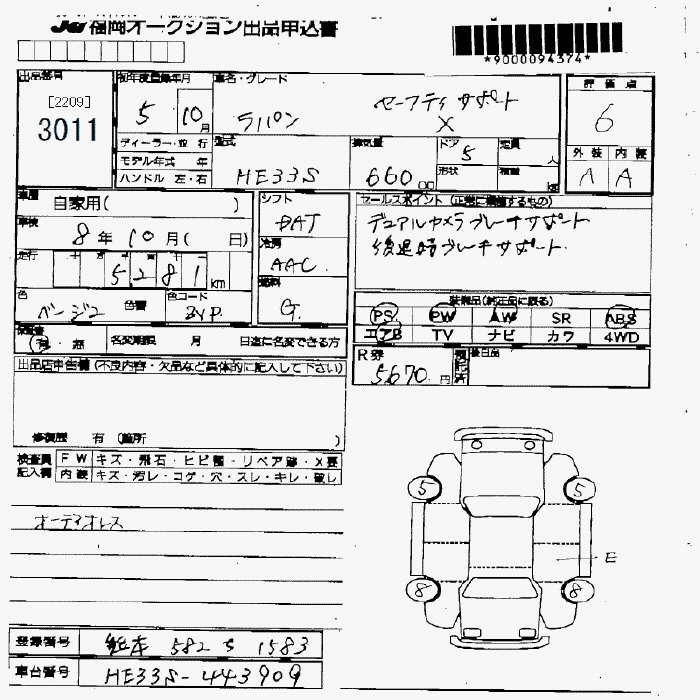 JU 福岡オークション出品申込書
*9000094374*
出品番号
[2209]
3011
初年度登録年月
5 10月
車名・グレード
セーフティサポート
ラパン X
評価点
6
ディーラー・並行
モデル年式 年
ハンドル 左・右
型式
HE33S
排気量
660 cc
ドア
5
形状
定員
人
積載
外装 内装
A A
車歴
自家用( )
車検
8年10月( 日)
走行
5281km
色
ベージュ
色替
色コード
ZVP
シフト
DAT
冷房
AAC
燃料
G
セールスポイント(正常に機能するもの)
デュアルカメラブレーキサポート
後退時ブレーキサポート
装備品(純正品に限る)
PS PW AW SR ABS
エアB TV ナビ カワ 4WD
保証書
有・無
名変期限 月 日迄に名変できる方
R券
5670円
預託済
後日品
出品店申告欄(不良内容・欠品など具体的に記入して下さい)
修復歴 有 (箇所 )
検査員 FW キズ・飛石・ヒビ割・リペア跡・X要
記入欄 内装 キズ・汚レ・コゲ・穴・スレ・キレ・破レ
オーディオレス
5 5
E
8 8
登録番号 熊本 582 さ 1583
車台番号 HE33S-443909